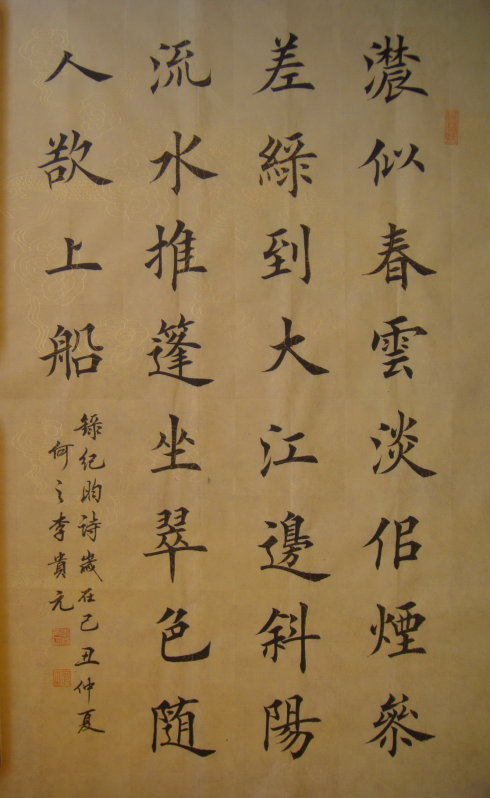 濃似春雲淡佀煙叅
差綠到大江邊斜陽
流水推篷坐翠色随
人欲上船
錄紀昀詩歲在己丑仲夏
何之李貴元